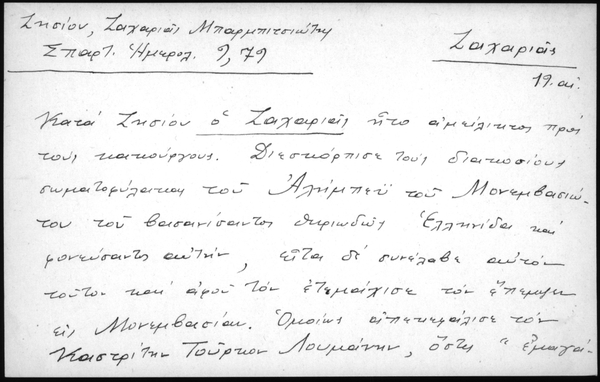 Ζησίου, Ζαχαριᾶς Μπαρμπιτσιώτης
Σπαρτ. Ἡμερολ. 9, 79
Ζαχαριᾶς
19. αἰ.
Κατά Ζησίου ὁ Ζαχαριᾶς ἦτο ἀμείλικτος πρός
τούς κακούργους. Διεσκόρπισε τούς διακοσίους
σωματοφύλακας τοῦ Ἀλήμπεϋ τοῦ Μονεμβασιώ-
του τοῦ βασανίσαντος θηριωδῶς Ἑλληνίδα καί
φονεύσαντος αὐτήν, εἶτα δέ συνέλαβε αὐτόν
τοῦτον καί ἀφοῦ τόν ἐτεμάχισε τόν ἔπεμψεν
εἰς Μονεμβασίαν. Ὁμοίως ἀπεκεφάλισε τόν
Καστρίτην Τοῦρκον Λουμάνην, ὅστις "ἐμαγά-